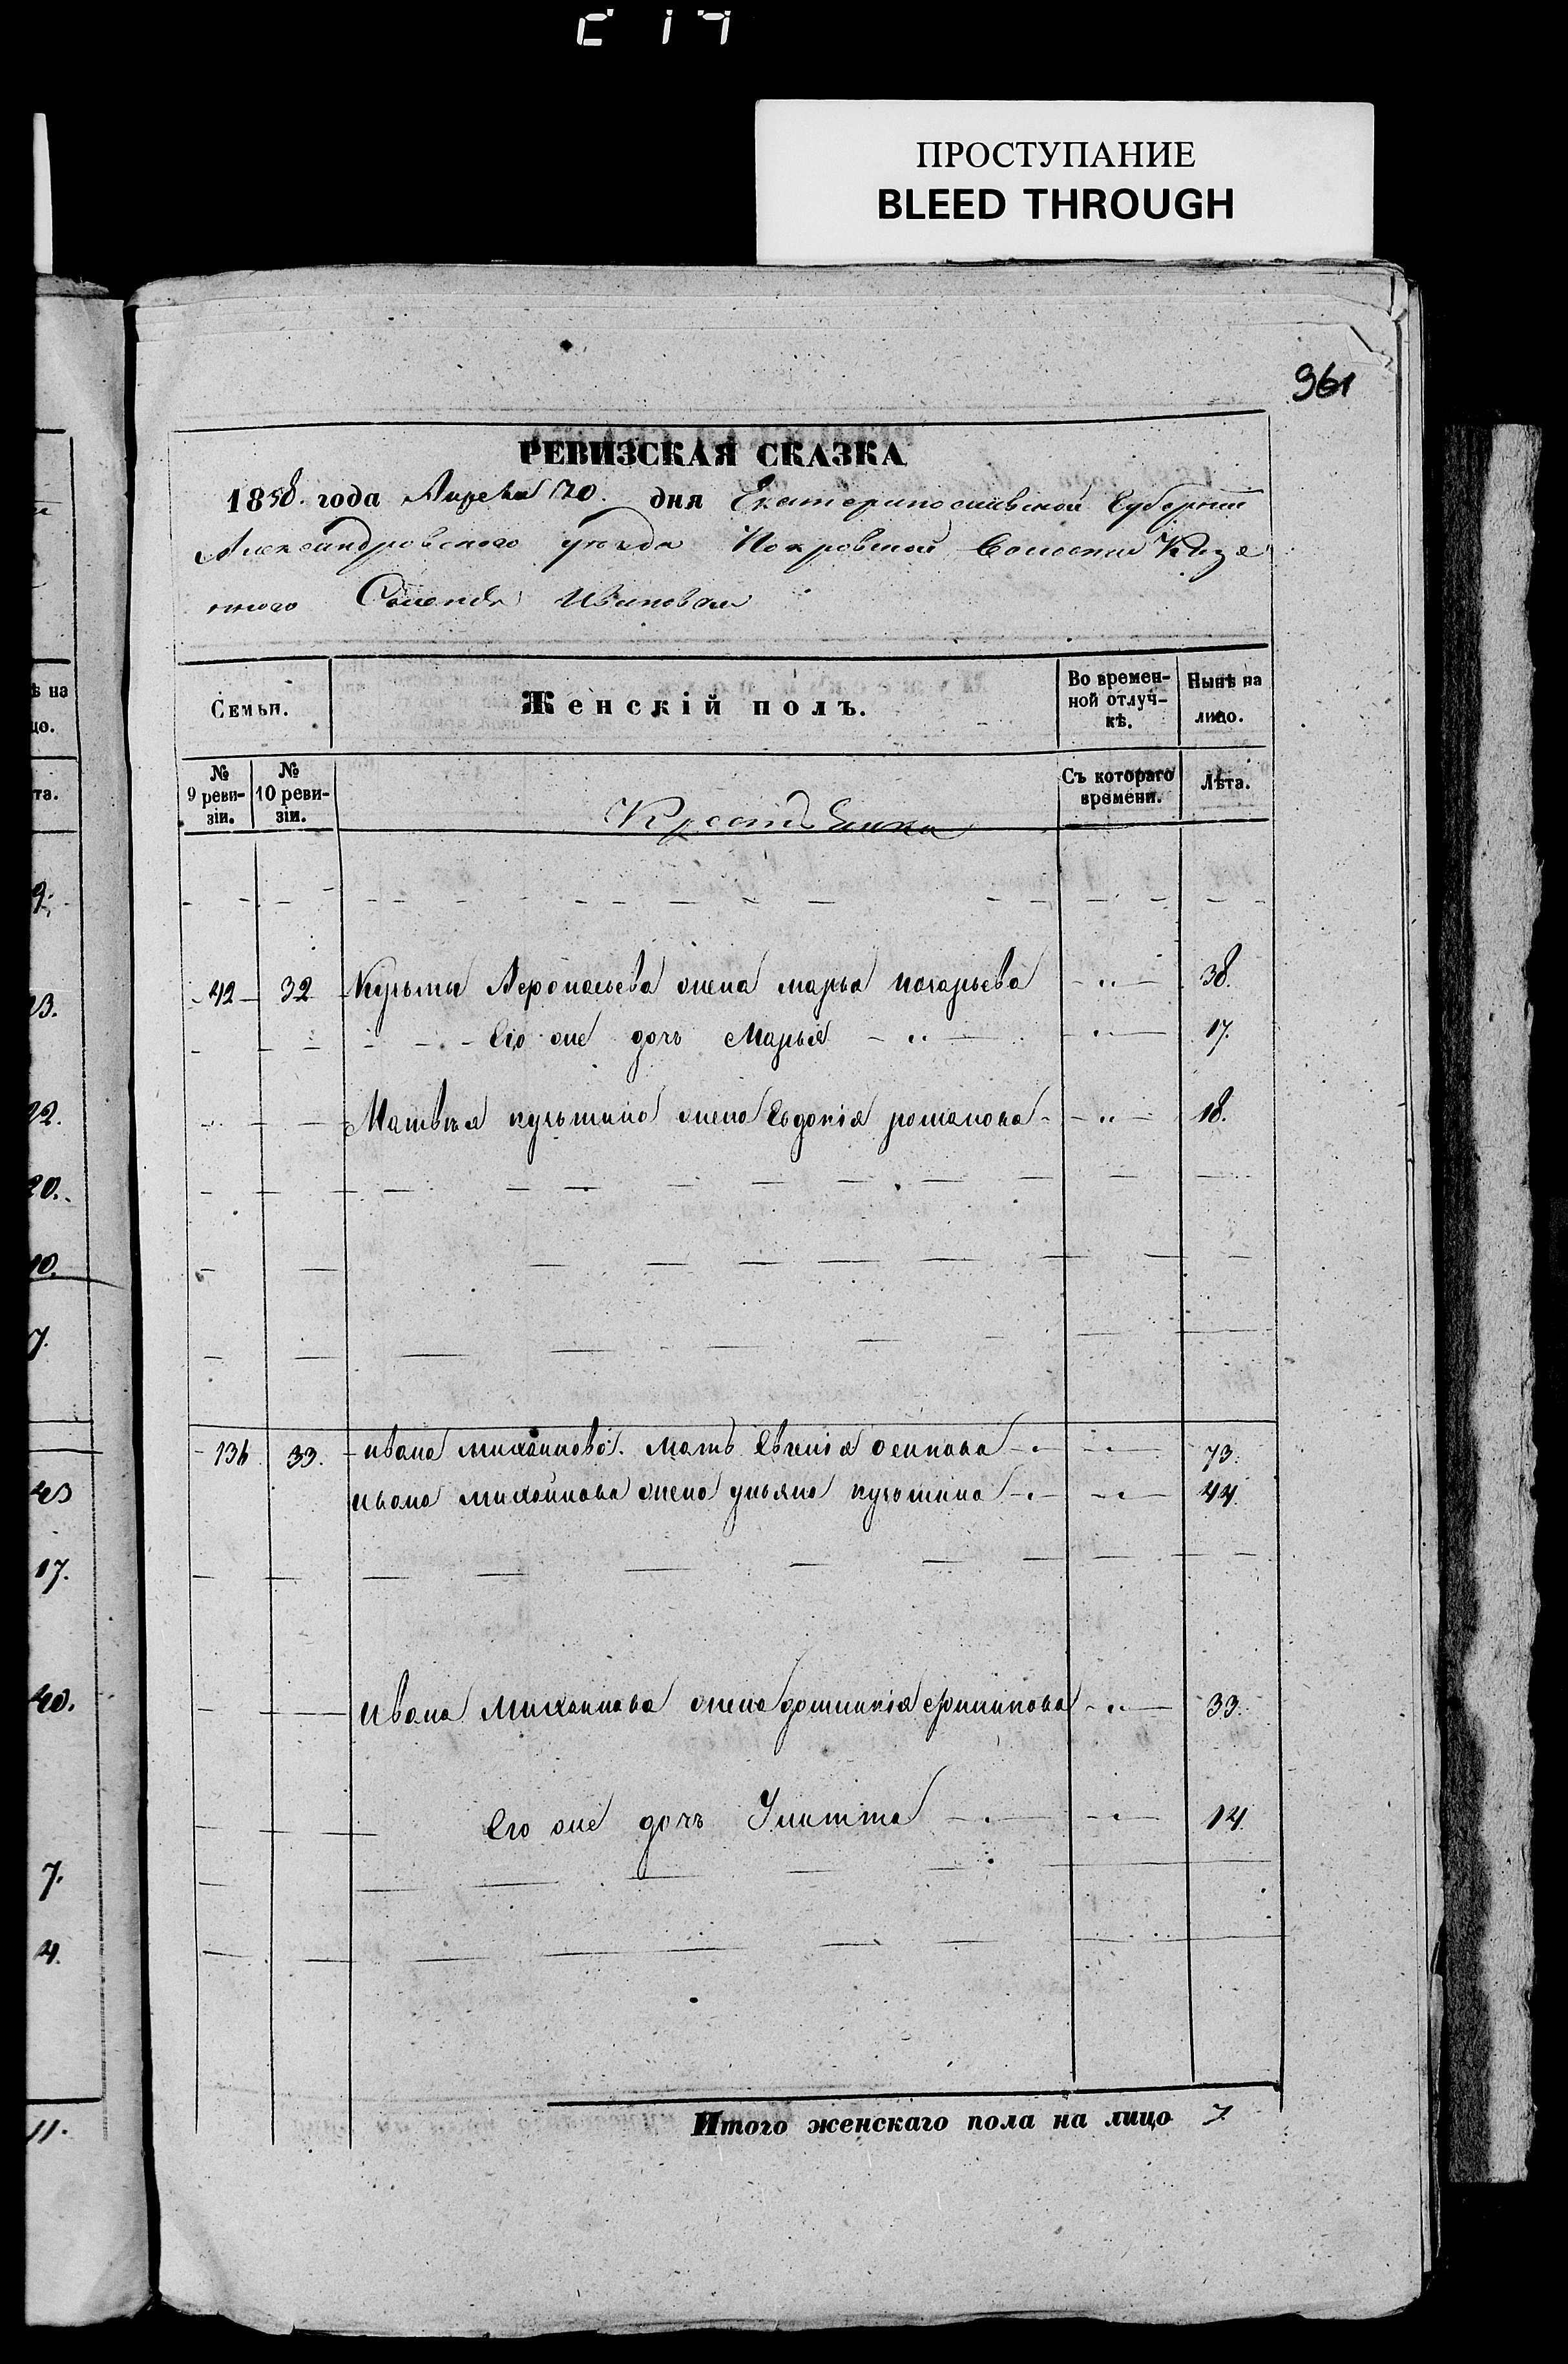 C 17
ПРОСТУПАНИЕ
BLEED THROUGH
361
РЕВИЗСКАЯ СКАЗКА
1858. года Апреля 20. дня Екатеринославской Губернии
Александровского уезда Покровской Волости Казе
нного Селенія Ивановки
ѣ на
цо.
та.
Семьи.
Женскій полъ.
Во времен-
ной отлуч-
кѣ.
Ныне на
лицо.
№
9 реви-
зіи.
№
10 реви-
зіи.
Съ котораго
времени.
Лѣта.
42 32 Кузьмы жена марья 38.
Его же дочь Марья 17.
Матвея кузьмина жена Евдокія романова 18.
136 33. ивана михайлова. мать Евгенія осипова 73.
ивана михайлова жена ульяна кузьмина 44.
ивана михайлова жена домникія филипова 33.
Его же дочь Улитта 14
Итого женскаго пола на лицо 7
9.
23.
22.
20.
10.
7.
43
17.
40.
7.
4.
11.